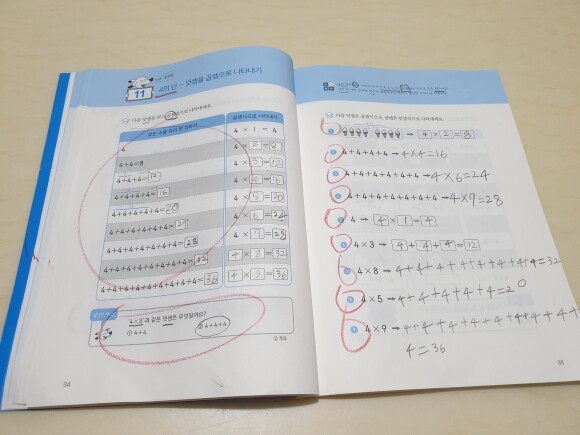 11
4의 단 - 덧셈을 곱셈으로 나타내기
다음 덧셈을 하고 곱셈으로 나타내세요.
같은 수를 여러 번 더하기
곱셈식으로 나타내기
4
4 × 1 = 4
4+4=8
4 × 2 = 8
4+4+4=12
4 × 3 = 12
4+4+4+4=16
4 × 4 = 16
4+4+4+4+4=20
4 × 5 = 20
4+4+4+4+4+4=24
4 × 6 = 24
4+4+4+4+4+4+4=28
4 × 7 = 28
4+4+4+4+4+4+4+4=32
4 × 8 = 32
4+4+4+4+4+4+4+4+4=36
4 × 9 = 36
4×3과 같은 덧셈은 무엇일까요?
① 4+4
② 4+4+4
34
다음 덧셈은 곱셈식으로, 곱셈은 덧셈식으로 나타내세요.
→ 4 × 2 = 8
4+4+4+4 → 4×4=16
4+4+4+4+4+4 → 4×6=24
4+4+4+4+4+4+4 → 4×7=28
4 → 4 × 1 = 4
4×3 → 4+4+4=12
4×8 → 4+4+4+4+4+4+4+4=32
4×5 → 4+4+4+4+4=20
4×9 → 4+4+4+4+4+4+4+4+
4=36
35